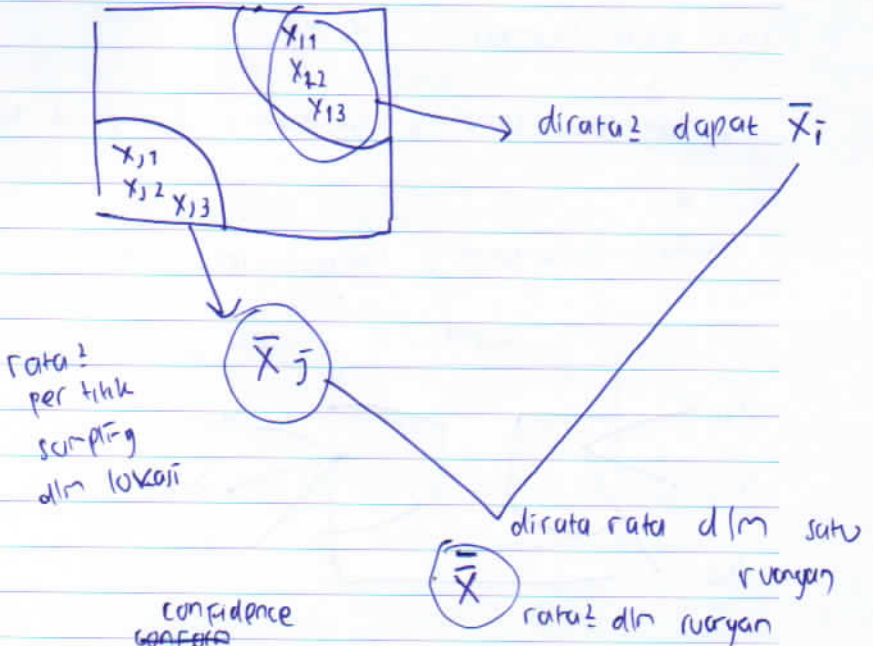 Xi1
Xi2
Xi3
dirata² dapat X̄i
Xj1
Xj2 Xj3
X̄j
rata²
per titik
sampling
dlm lokasi
dirata rata dlm satu
ruangan
X̿
rata² dlm ruangan
confidence